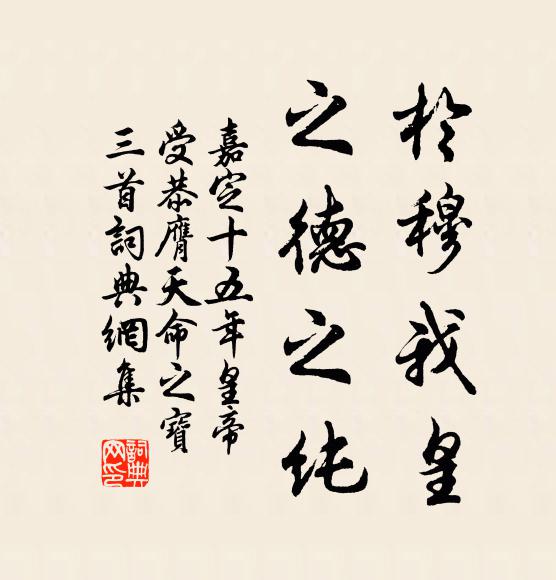 於穆我皇
之德之纯
嘉定十五年皇帝
受恭膺天命之寶
三首詞典網集
詞典
网印